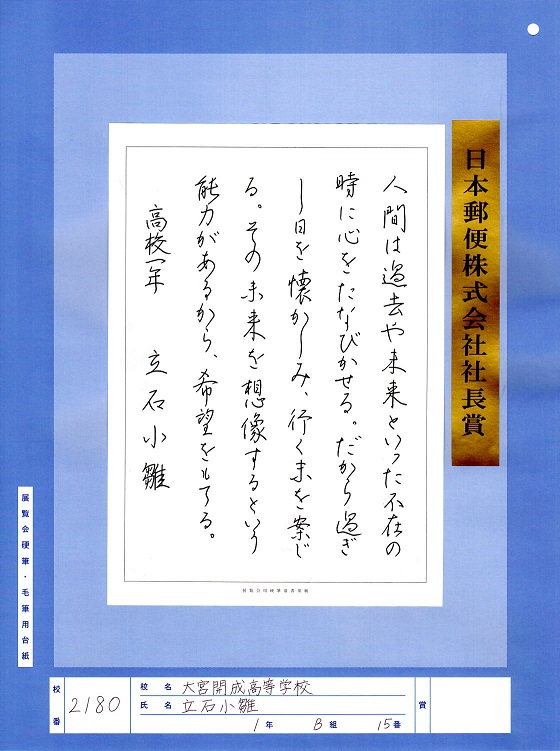 日本郵便株式会社社長賞
人間は過去や未来といった不在の
時に心をたなびかせる。だから過ぎ
し日を懐かしみ、行く末を案じ
る。その未来を想像するという
能力があるから、希望をもてる。
高校一年 立石小雛
展覧会用硬筆清書用紙
展覧会硬筆・毛筆用台紙
校番 2180 校名 大宮開成高等学校 賞
氏名 立石小雛
1年 B組 15番